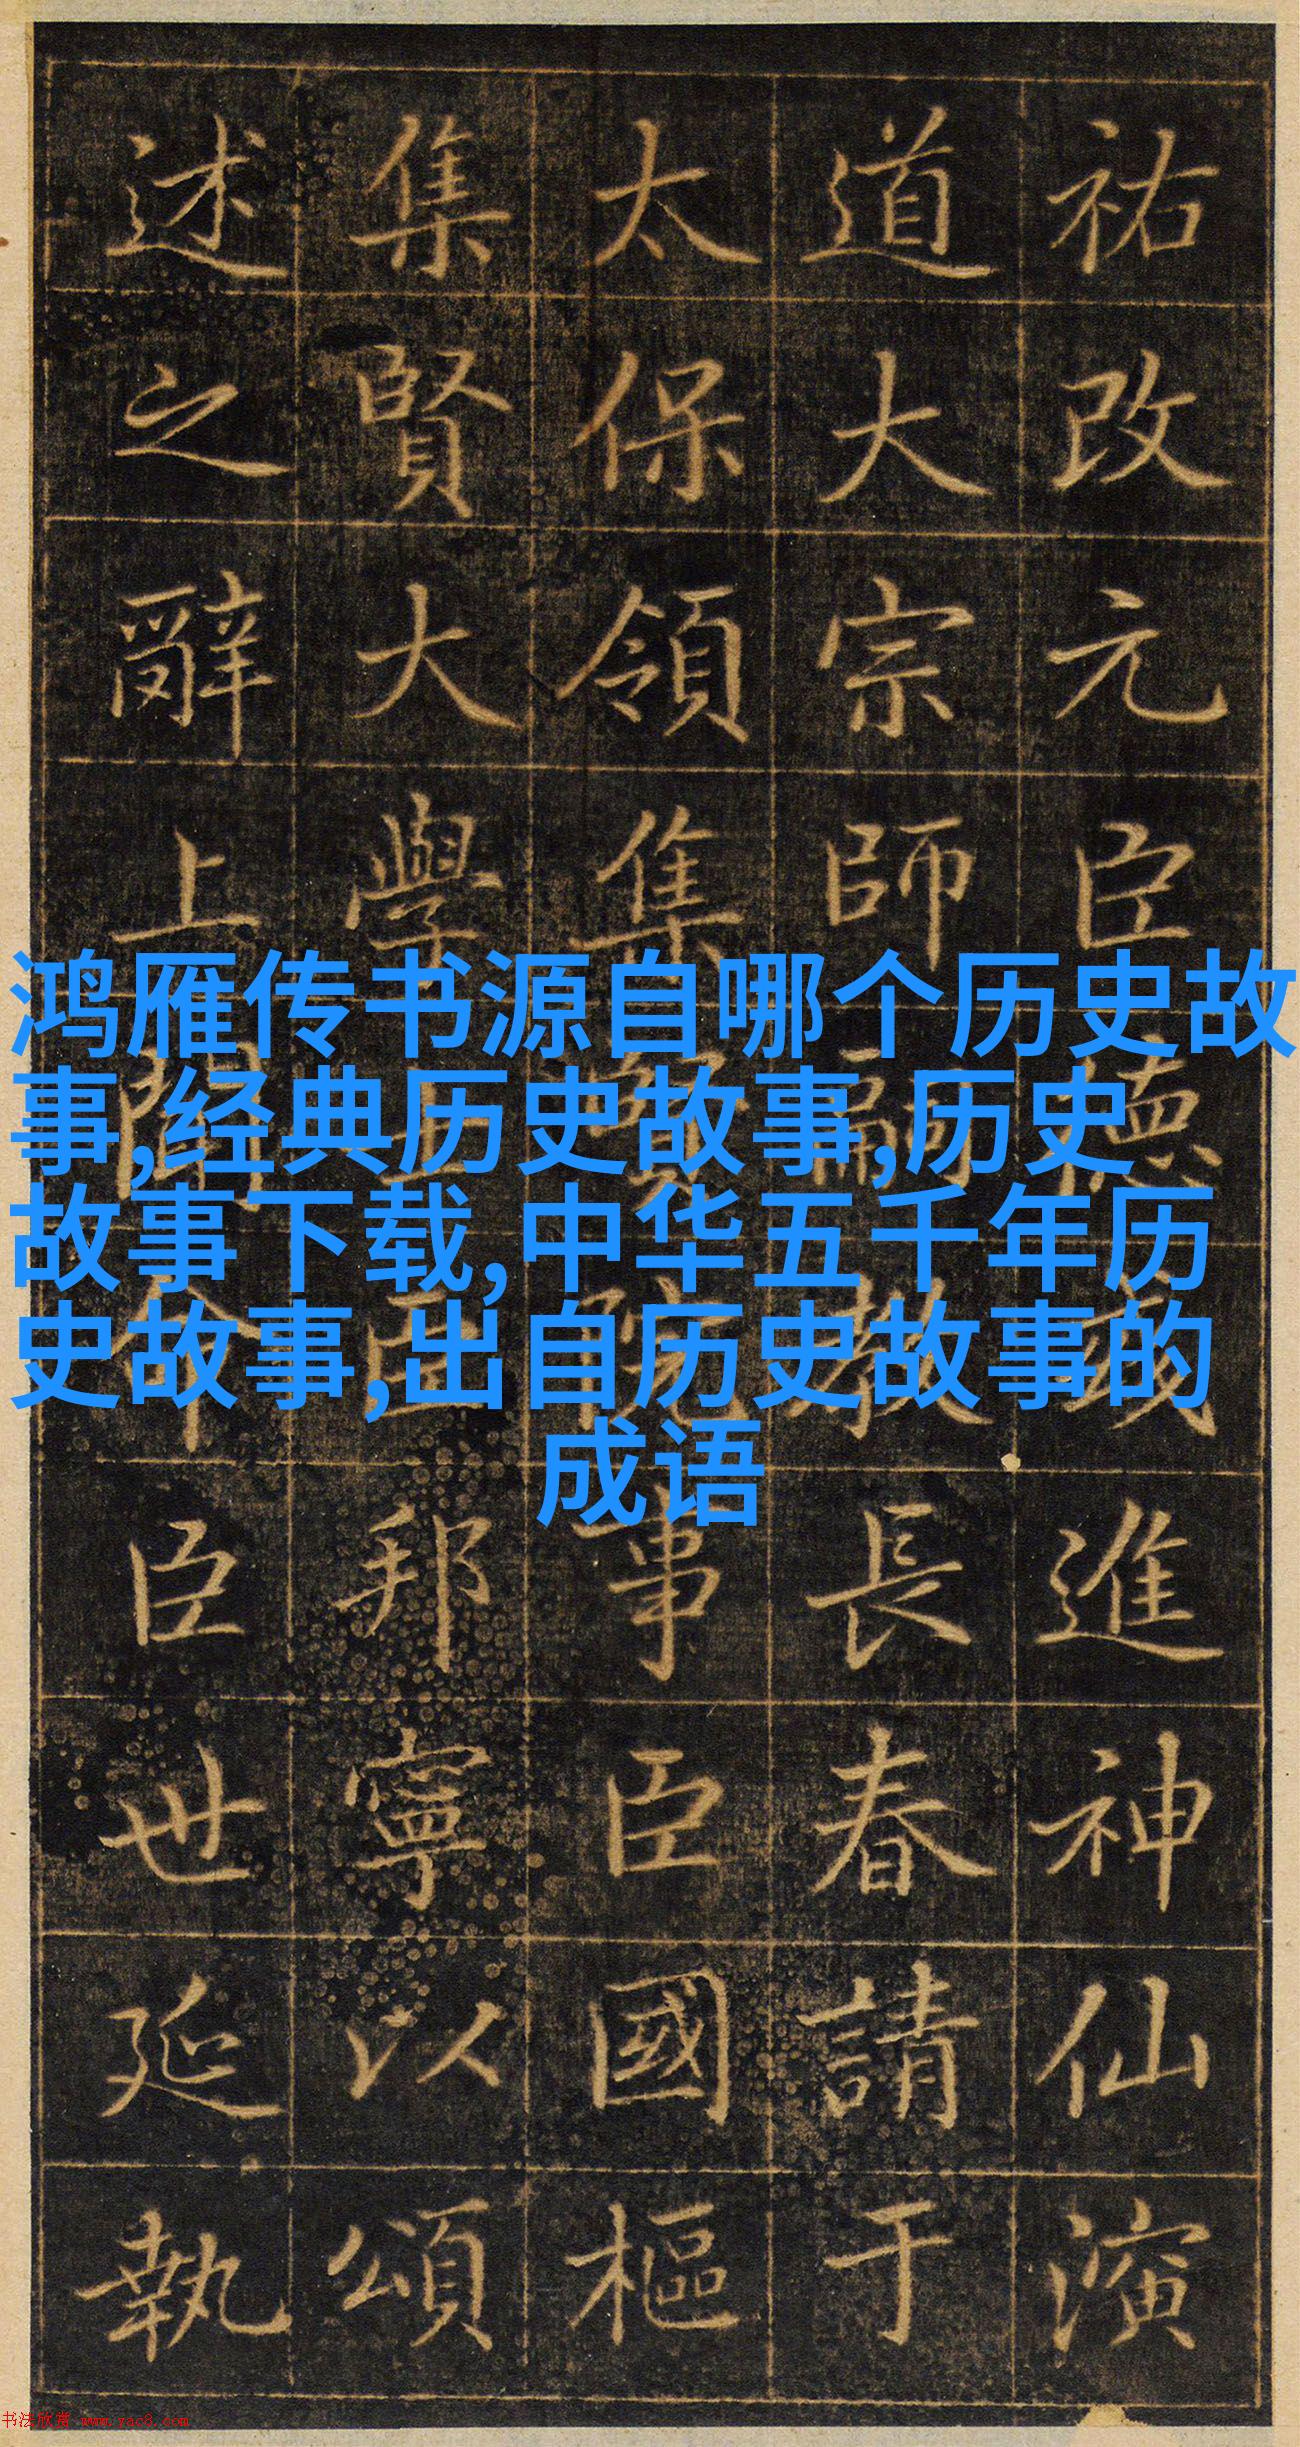 祐改元臣德彧進神仙演
道大宗師嗣教長春請于
太保領集賢院事臣國樞
集賢大學士臣邦寧以頌
述之辭上聞臣世延執
鸿雁传书源自哪个历史故
事,经典历史故事,历史
故事下载,中华五千年历
史故事,出自历史故事的
成语
书法欣赏 www.yac8.com